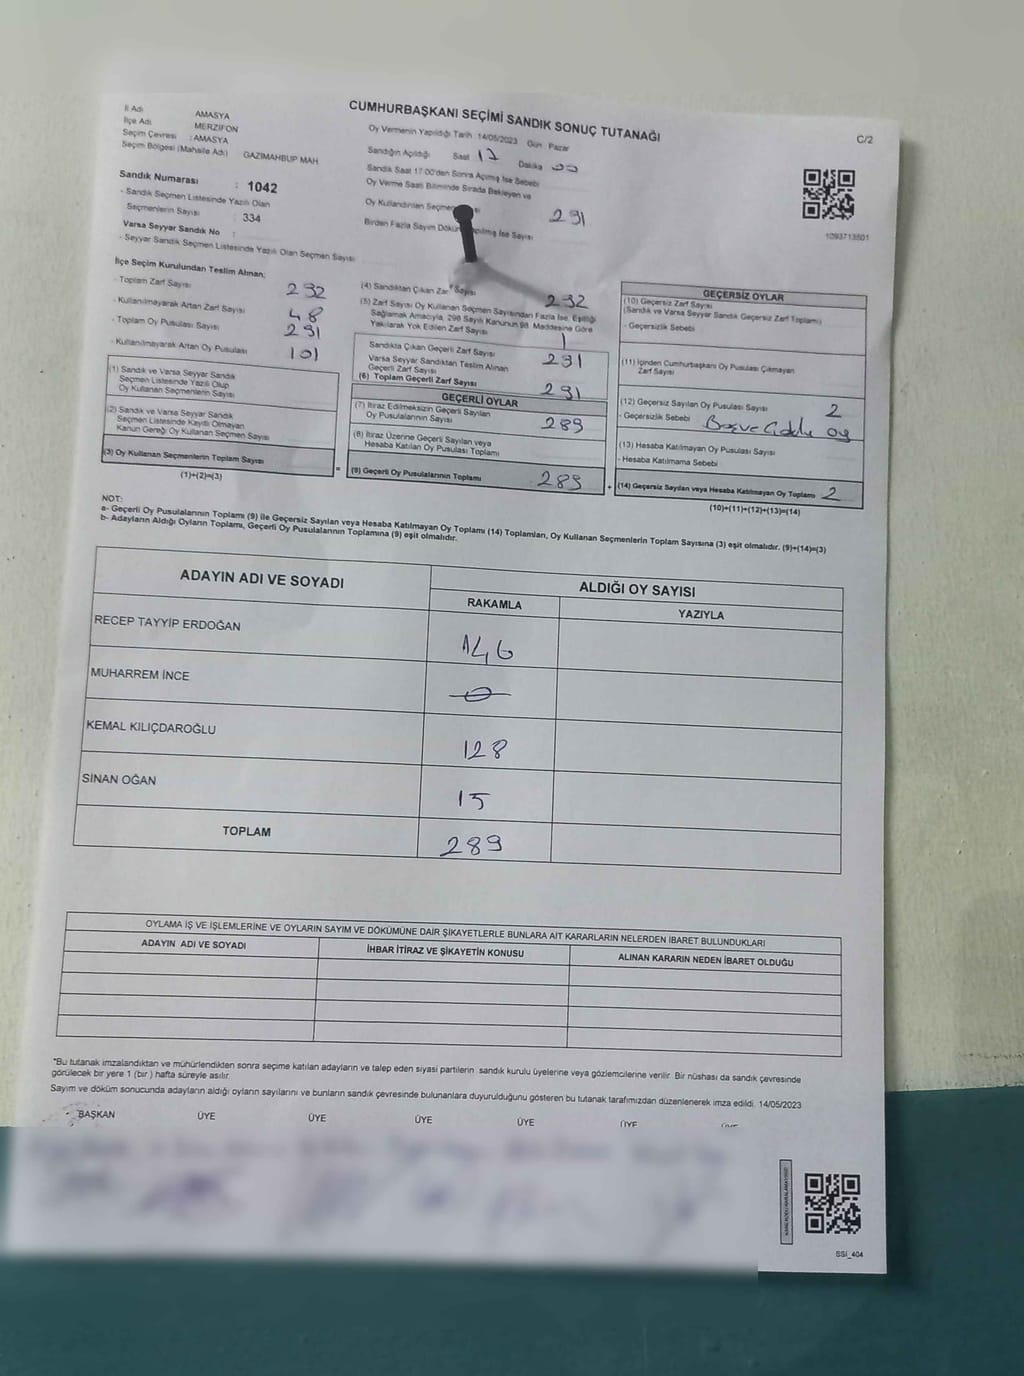 CUMHURBAŞKANI SEÇİMİ SANDIK SONUÇ TUTANAĞI
C/2
İl Adı AMASYA
İlçe Adı MERZİFON
Seçim Çevresi : AMASYA
Seçim Bölgesi (Mahalle Adı) GAZİMAHBUP MAH
Sandık Numarası : 1042
- Sandık Seçmen Listesinde Yazılı Olan
Seçmenlerin Sayısı : 334
Varsa Seyyar Sandık No :
- Seyyar Sandık Seçmen Listesinde Yazılı Olan Seçmen Sayısı
Oy Vermenin Yapıldığı Tarih 14/05/2023 Gün Pazar
Sandığın Açıldığı Saat 17 Dakika 00
Sandık Saat 17.00'den Sonra Açılmış İse Sebebi
Oy Verme Saati Bitiminde Sırada Bekleyen ve
Oy Kullandırılan Seçmen 291
Birden Fazla Sayım Döküm Yapılmış İse Sayısı
1093713501
İlçe Seçim Kurulundan Teslim Alınan;
- Toplam Zarf Sayısı 292
- Kullanılmayarak Artan Zarf Sayısı 48
- Toplam Oy Pusulası Sayısı 291
- Kullanılmayarak Artan Oy Pusulası 101
(1) Sandık ve Varsa Seyyar Sandık
Seçmen Listesinde Yazılı Olup
Oy Kullanan Seçmenlerin Sayısı
(2) Sandık ve Varsa Seyyar Sandık
Seçmen Listesinde Kayıtlı Olmayan
Kanun Gereği Oy Kullanan Seçmen Sayısı
(3) Oy Kullanan Seçmenlerin Toplam Sayısı
(1)+(2)=(3)
(4) Sandıktan Çıkan Zarf Sayısı 292
(5) Zarf Sayısı Oy Kullanan Seçmen Sayısından Fazla İse, Eşitliği
Sağlamak Amacıyla, 298 Sayılı Kanunun 98. Maddesine Göre
Yakılarak Yok Edilen Zarf Sayısı 1
Sandıkta Çıkan Geçerli Zarf Sayısı 291
Varsa Seyyar Sandıktan Teslim Alınan
Geçerli Zarf Sayısı
(6) Toplam Geçerli Zarf Sayısı 291
GEÇERLİ OYLAR
(7) İtiraz Edilmeksizin Geçerli Sayılan
Oy Pusulalarının Sayısı 289
(8) İtiraz Üzerine Geçerli Sayılan veya
Hesaba Katılan Oy Pusulası Toplamı
= (9) Geçerli Oy Pusulalarının Toplamı 289
GEÇERSİZ OYLAR
(10) Geçersiz Zarf Sayısı
(Sandık ve Varsa Seyyar Sandık Geçersiz Zarf Toplamı)
- Geçersizlik Sebebi
(11) İçinden Cumhurbaşkanı Oy Pusulası Çıkmayan
Zarf Sayısı
(12) Geçersiz Sayılan Oy Pusulası Sayısı 2
- Geçersizlik Sebebi Boş ve oy
(13) Hesaba Katılmayan Oy Pusulası Sayısı
- Hesaba Katılmama Sebebi
+ (14) Geçersiz Sayılan veya Hesaba Katılmayan Oy Toplamı 2
(10)+(11)+(12)+(13)=(14)
NOT:
a- Geçerli Oy Pusulalarının Toplamı (9) ile Geçersiz Sayılan veya Hesaba Katılmayan Oy Toplamı (14) Toplamları, Oy Kullanan Seçmenlerin Toplam Sayısına (3) eşit olmalıdır. (9)+(14)=(3)
b- Adayların Aldığı Oyların Toplamı, Geçerli Oy Pusulalarının Toplamına (9) eşit olmalıdır.
ADAYIN ADI VE SOYADI ALDIĞI OY SAYISI
RAKAMLA YAZIYLA
RECEP TAYYİP ERDOĞAN 146
MUHARREM İNCE 0
KEMAL KILIÇDAROĞLU 128
SİNAN OĞAN 15
TOPLAM 289
OYLAMA İŞ VE İŞLEMLERİNE VE OYLARIN SAYIM VE DÖKÜMÜNE DAİR ŞİKAYETLERLE BUNLARA AİT KARARLARIN NELERDEN İBARET BULUNDUKLARI
ADAYIN ADI VE SOYADI İHBAR İTİRAZ VE ŞİKAYETİN KONUSU ALINAN KARARIN NEDEN İBARET OLDUĞU
*Bu tutanak imzalandıktan ve mühürlendikten sonra seçime katılan adayların ve talep eden siyasi partilerin sandık kurulu üyelerine veya gözlemcilerine verilir. Bir nüshası da sandık çevresinde
görülecek bir yere 1 (bir) hafta süreyle asılır.
Sayım ve döküm sonucunda adayların aldığı oyların sayılarını ve bunların sandık çevresinde bulunanlara duyurulduğunu gösteren bu tutanak tarafımızdan düzenlenerek imza edildi. 14/05/2023
BAŞKAN ÜYE ÜYE ÜYE ÜYE ÜYE
SSİ_404